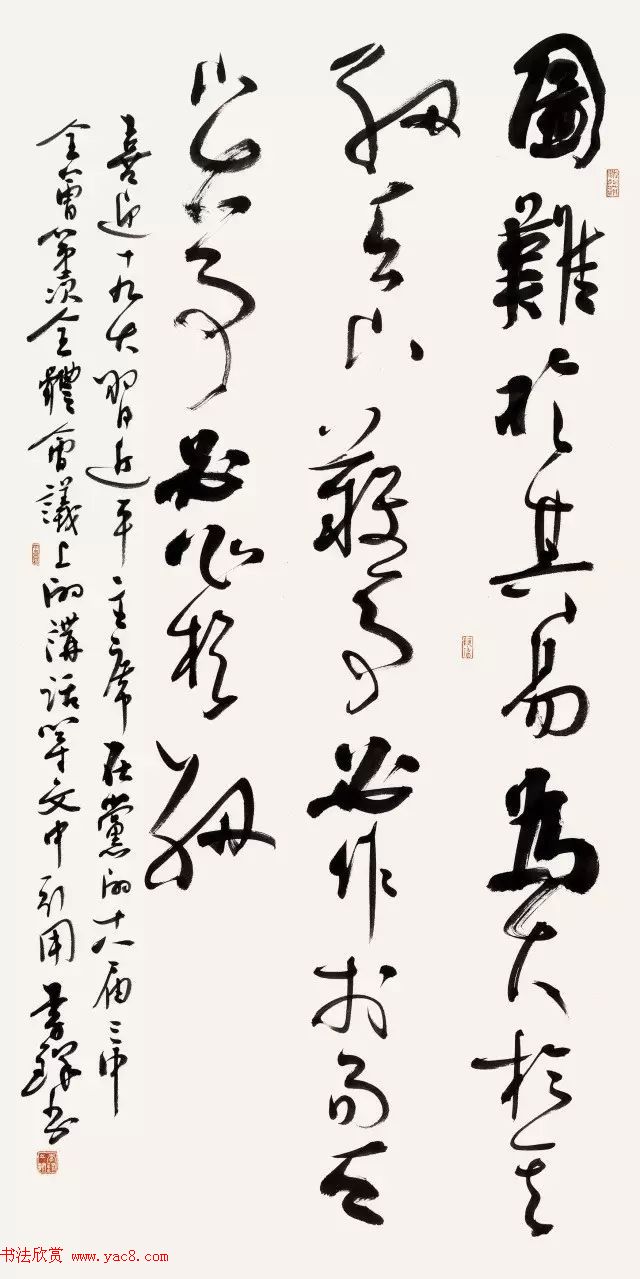 圖難於其易為大於其
細天下難事必作於易天
下大事必作於細
喜迎十九大習近平主席在黨的十八屆三中
全會第次全體會議上的講話等文中引用
书法欣赏 www.yac8.com